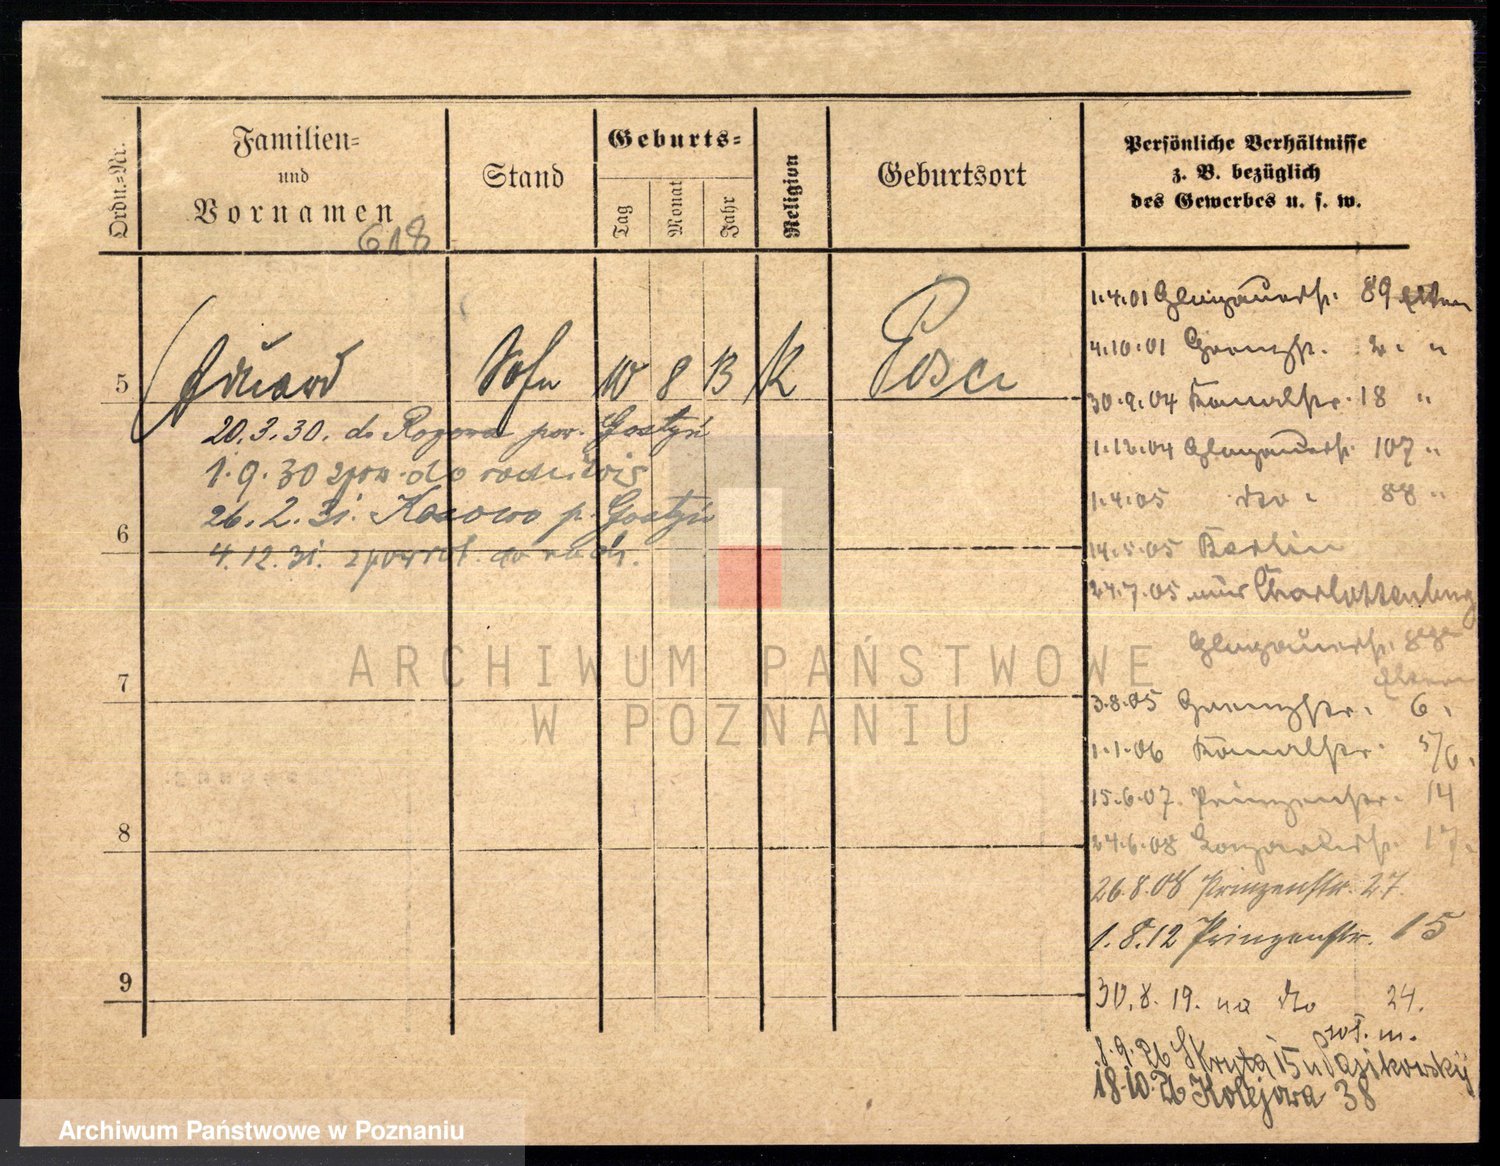 Ordn.-Nr.
Familien-
und
Vornamen
618
Stand
Geburts-
Tag
Monat
Jahr
Religion
Geburtsort
Persönliche Verhältnisse
z. B. bezüglich
des Gewerbes u. s. w.
5
Eduard Sohn 10 8 13 K Posen
20.3.30. do por. Gostyń
1.9.30 do
26.2.31. p. Gostyń
6
4.12.31. do
7
8
9
1.4.01 Glogauerstr. 89 Eltern
4.10.01 Grenzstr. 2. "
30.9.04 Kanalstr. 18 "
1.12.04 Glogauerstr. 107 "
1.4.05 do. 88 "
14.5.05 Berlin
24.7.05 Charlottenburg
Glogauerstr.
Eltern
3.8.05 Grenzstr. 6.
1.1.06 Kanalstr. 5/6.
15.6.07. Prinzenstr. 14
24.6.08 17.
26.8.08 Prinzenstr. 27.
1.8.12 Prinzenstr. 15
30.8.19. na do 24.
8.9.26 Skryta 15
18.10.26 Kolejowa 38
ARCHIWUM PAŃSTWOWE
W POZNANIU
Archiwum Państwowe w Poznaniu